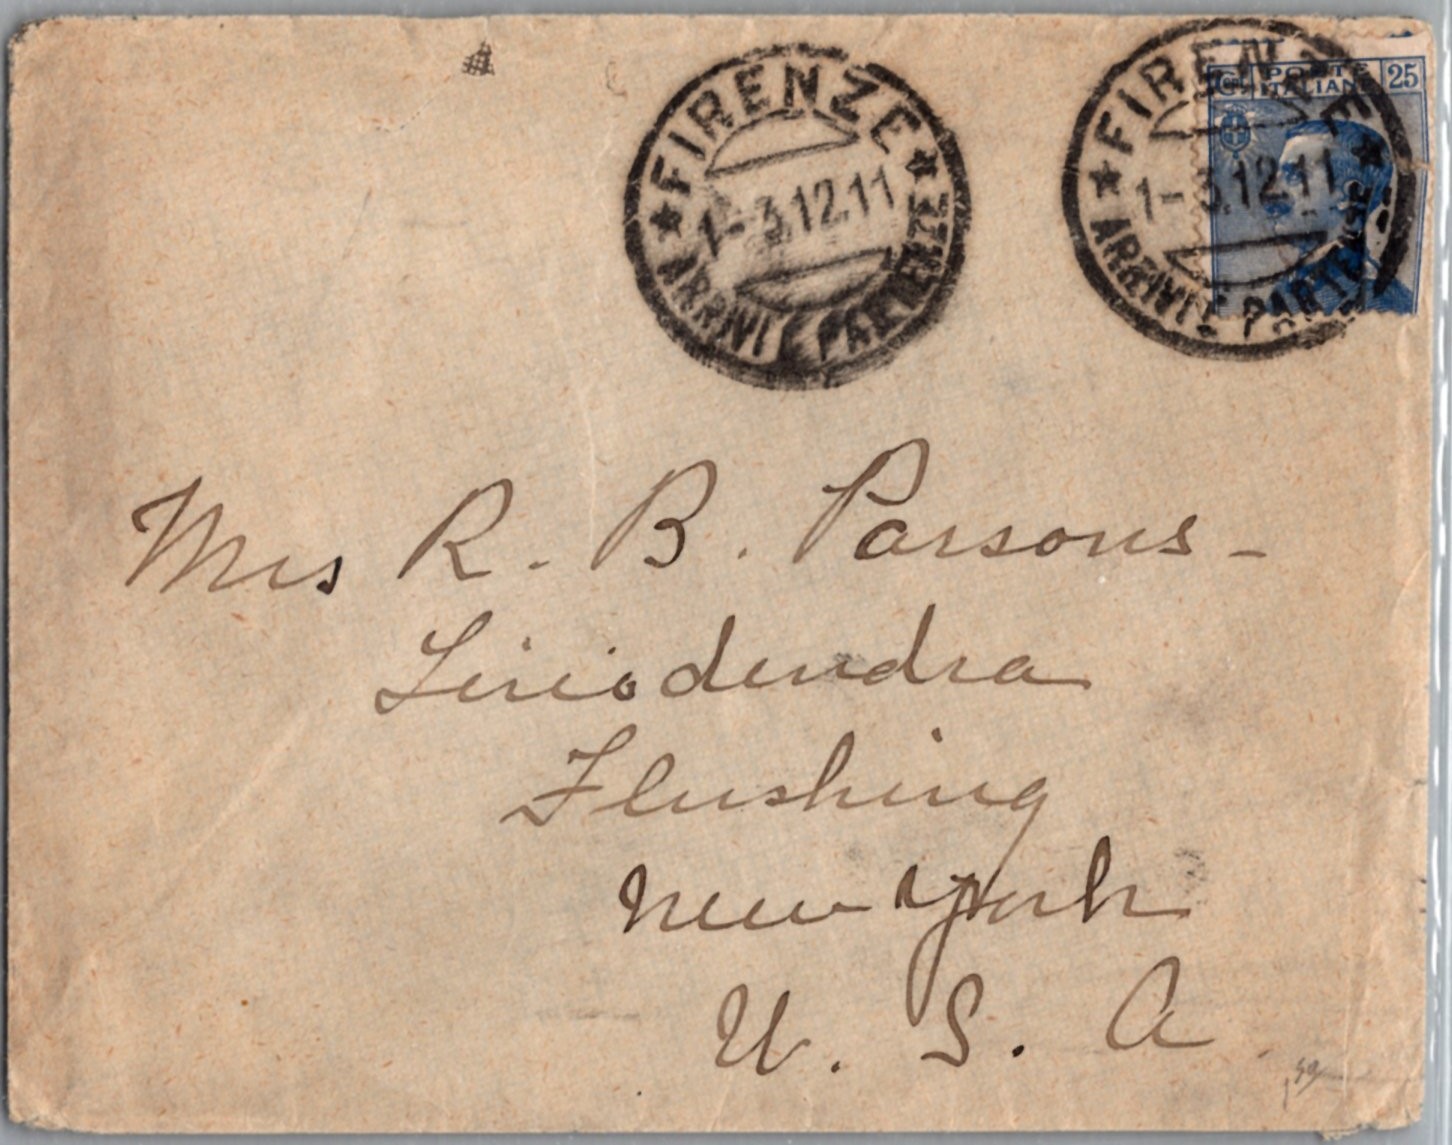 FIRENZE
1-3.12.11
ARRIVI E PARTENZE
FIRENZE
1-3.12.11
ARRIVI E PARTE
POSTE
ITALIANE
25
Mrs R. B. Parsons-
Liriodendra
Flushing
New York
U. S. A